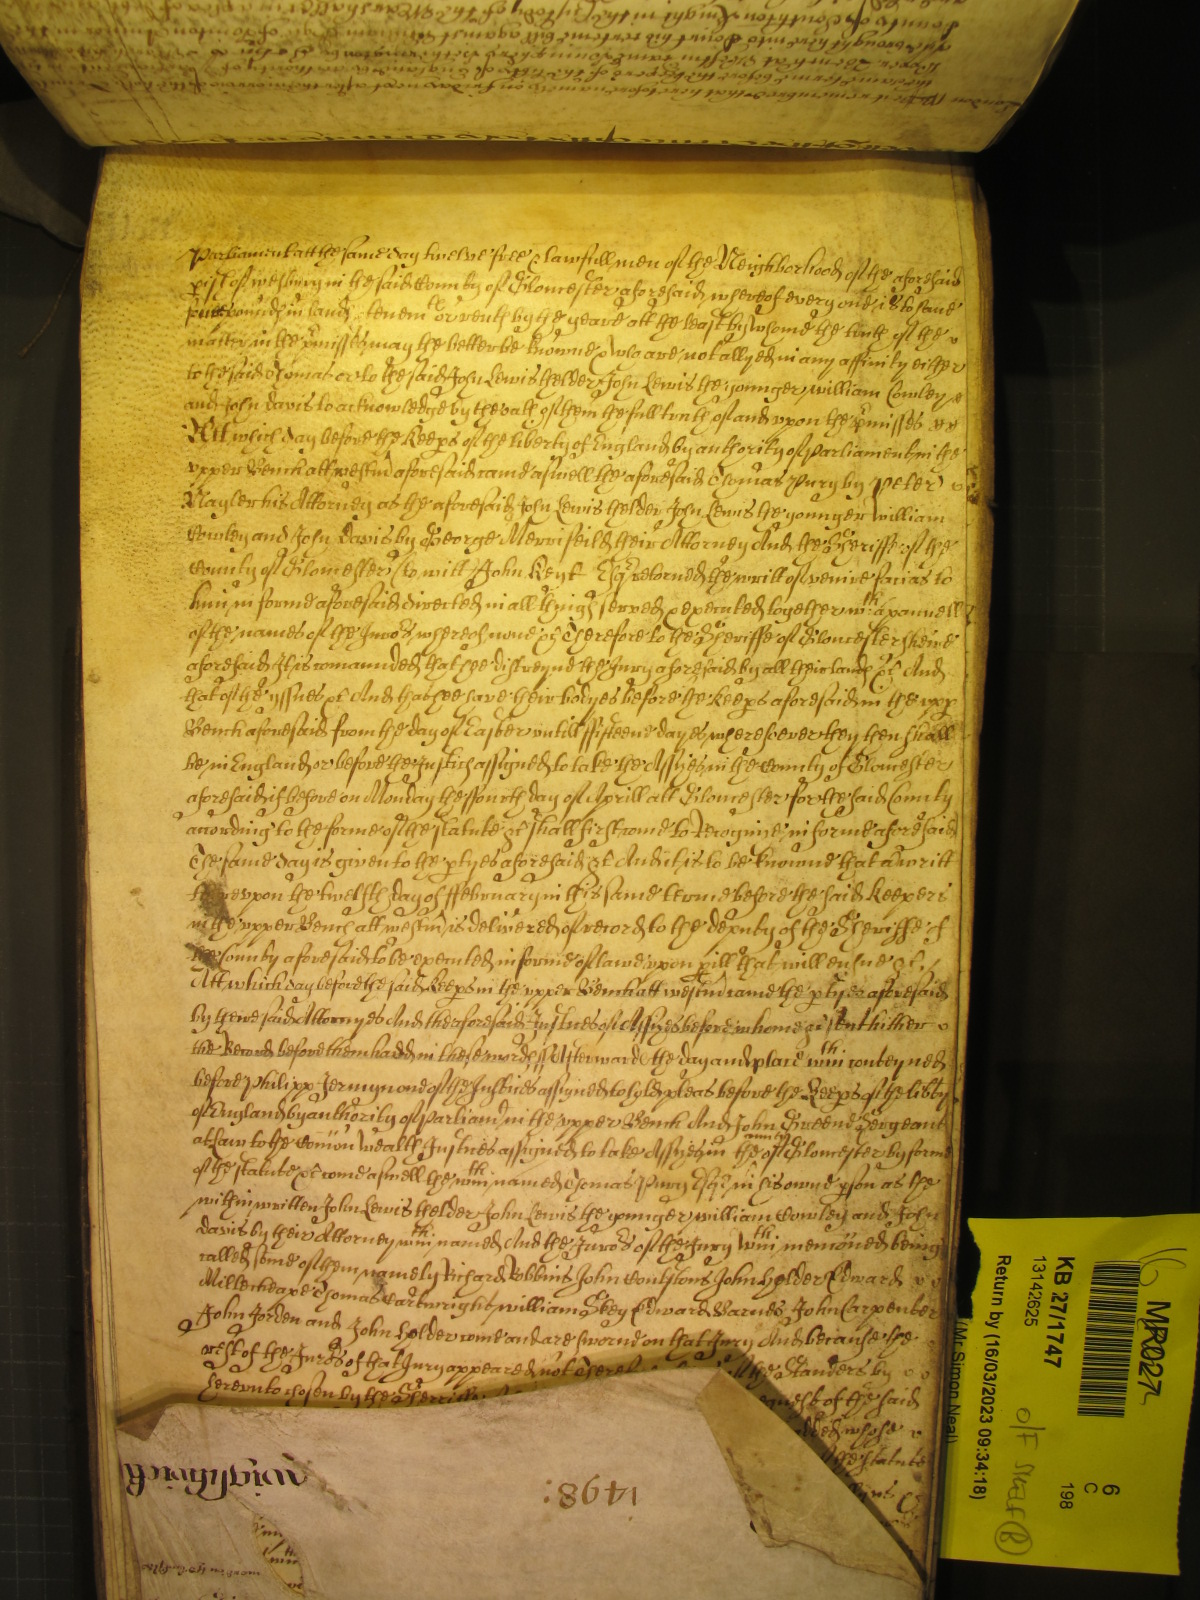 Parliament att the same day twelve free & lawfull men of the Neighborhood of the aforesaid
pish of westbury in the said County of Gloucester aforesaid, whereof every one is to have
pounds in lands, tenemts or rents by the yeare att the least by whome the truth of the
matter in the pmisses may the better be knowne & who are not allyed in any affinity either
to the said Thomas or to the said John Lewis thelder John Lewis the younger william Cowley &
and John davis to acknowledge by the oath of them the full truth of and vpon the pmisses
Att which day before the Keeps of the liberty of England by authority of Parliament in the
vpper Bench att westm aforesaid came aswell the aforesaid Thomas Pury by Peter
Nayler his Attorney as the aforesaid John Lewis thelder John Lewis the younger william
Cowley and John davis by George Merrifeild their Attorney And the Sheriffe of the
County of Gloucester (to witt) John Keyt Esqr retorned the writt of venire facias to
him in forme aforesaid directed in all things served & executed together wth a pannell
of the names of the Jurors whereof none &c Therefore to the Sheriffe of Gloucestersheire
aforesaid It is comaunded that hee distreyne the Jury aforesaid by all their lands &c And
that of the yssues &c And that hee have their bodyes before the Keeps aforesaid in the vpp
Bench aforesaid from the day of Easter vntill fifteene dayes wheresoever they then shall
be in England or before the Justices assigned to take the Assizes in the County of Gloucester
aforesaid if before on Monday the fourth day of Aprill att Gloucester for the said County
according to the forme of the statute &c shall first come to Recognize in forme aforesaid
The same day is given to the ptyes aforesaid &c And it is to be knowne that a writt
thervpon the twelfth day of ffebruary in this same terme before the said Keepers
in the vpper Bench att westm is delivered of record to the deputy of the Sheriffe of
the County aforesaid to be executed in forme of lawe vpon pill that will ensue &c
Att which day before the said Keeps in the vpper Bench att westm came the ptyes aforesaid
by there said Attorneyes And the aforesaid Justices of Assizes before whome &c sent hither
the Record before them hadd in these words ss Afterwards the day and place wthin conteyned
before Philipp Jermyn one of the Justices assigned to hold pleas before the Keeps of the liberty
of England by authority of Parliamt in the vpper Bench And John Greene Sergeant
at law to the Comon wealth Justices assigned to take Assizes in the County of Gloucester by forme
of the statute &c come aswell the wthin named Thomas Pury Esqr in his owne pson as the
within written John Lewis thelder John Lewis the younger william Cowley and John
davis by their Attorney wthin named And the Jurors of the Jury wthin menconed being
called some of them namely Richard Robbins John John Holder Edward
Millecheape Thomas Cartwright william Skey Edward Barnes John Carpenter
John Jorden and John holder come and are sworne on that Jury And because the
rest of the Jurors of that Jury appeared not the Standers by
herevnto chosen by the Sherriffe
request of the said
added whose
the statute
1498:
Wightwick
KB 27/1747
13142625
Return by (16/03/2023 09:34:18)
(Mr Simon Neal)
MR027
6
C
198
O/F Shelf B
16